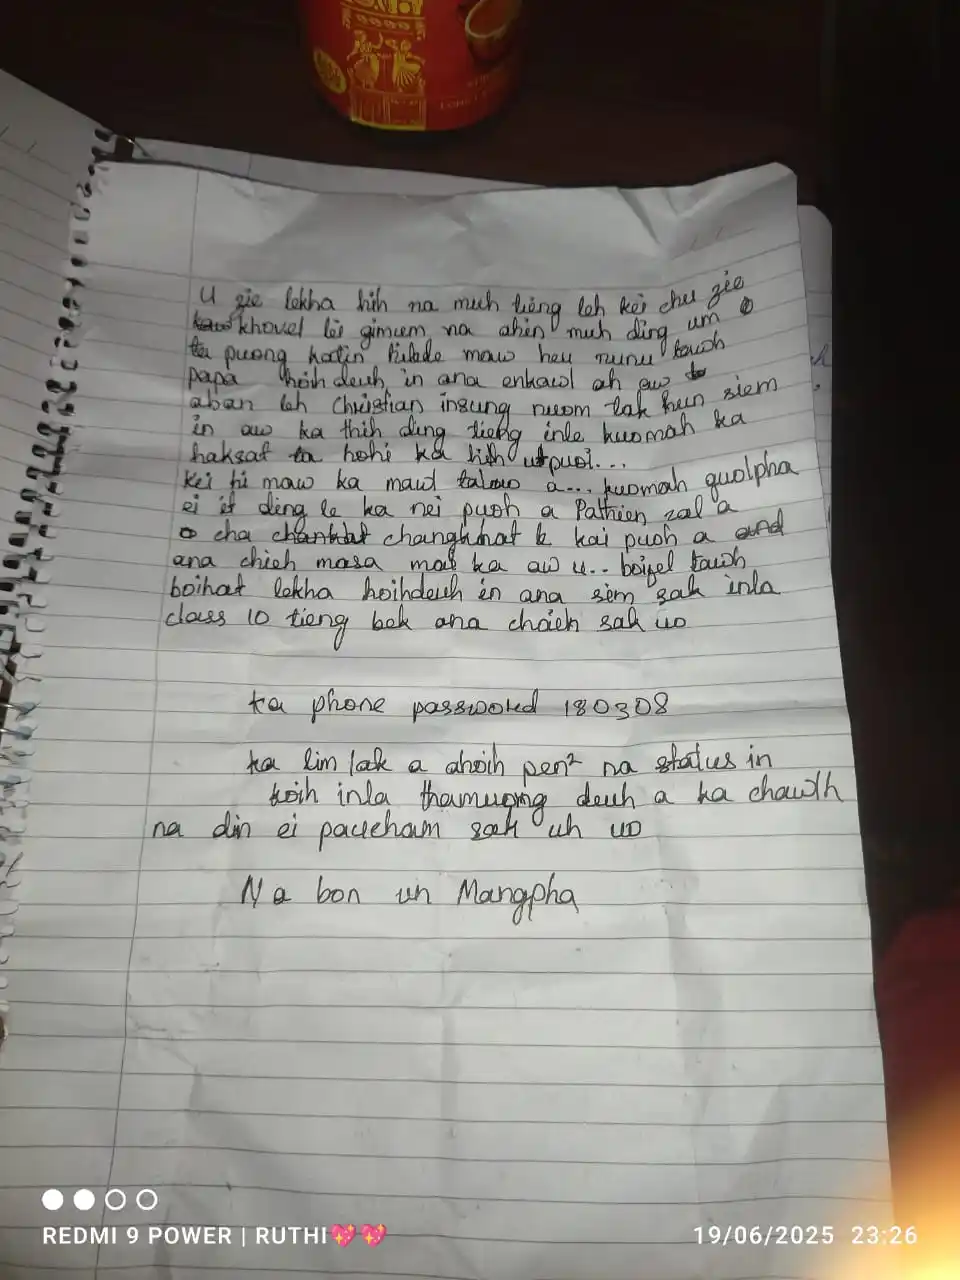 U zie lekha hih na muh tieng leh kei chu zie
khovel lei gimum na ahin muh ding um
ta puong hadin hilade maw heu nunu tawh
papa hoih deuh in ana enkawl ah aw
aban leh Christian insung nuom tak hun siem
in aw ka thih ding tieng inle kuomah ka
haksat ta hohi ka hih utpuoi...
kei hi maw ka maw talaw a... kuomah guolpha
ei it ding le ka nei puoh a Pathien zal a
cha changkhat k kai puoh a
ana chieh masa mai ka aw u.. boizel tawh
boihat lekha hoihdeuh in ana sim sak inla
class 10 tieng bek ana chaieh sak uo
ka phone passwored 180308
ka lim lak a ahoih pen² na status in
koih inla thamuong deuh a ka chawlh
na din ei paucham sak uh uo
Na bon un Mangpha
REDMI 9 POWER | RUTHI💖💖
19/06/2025 23:26